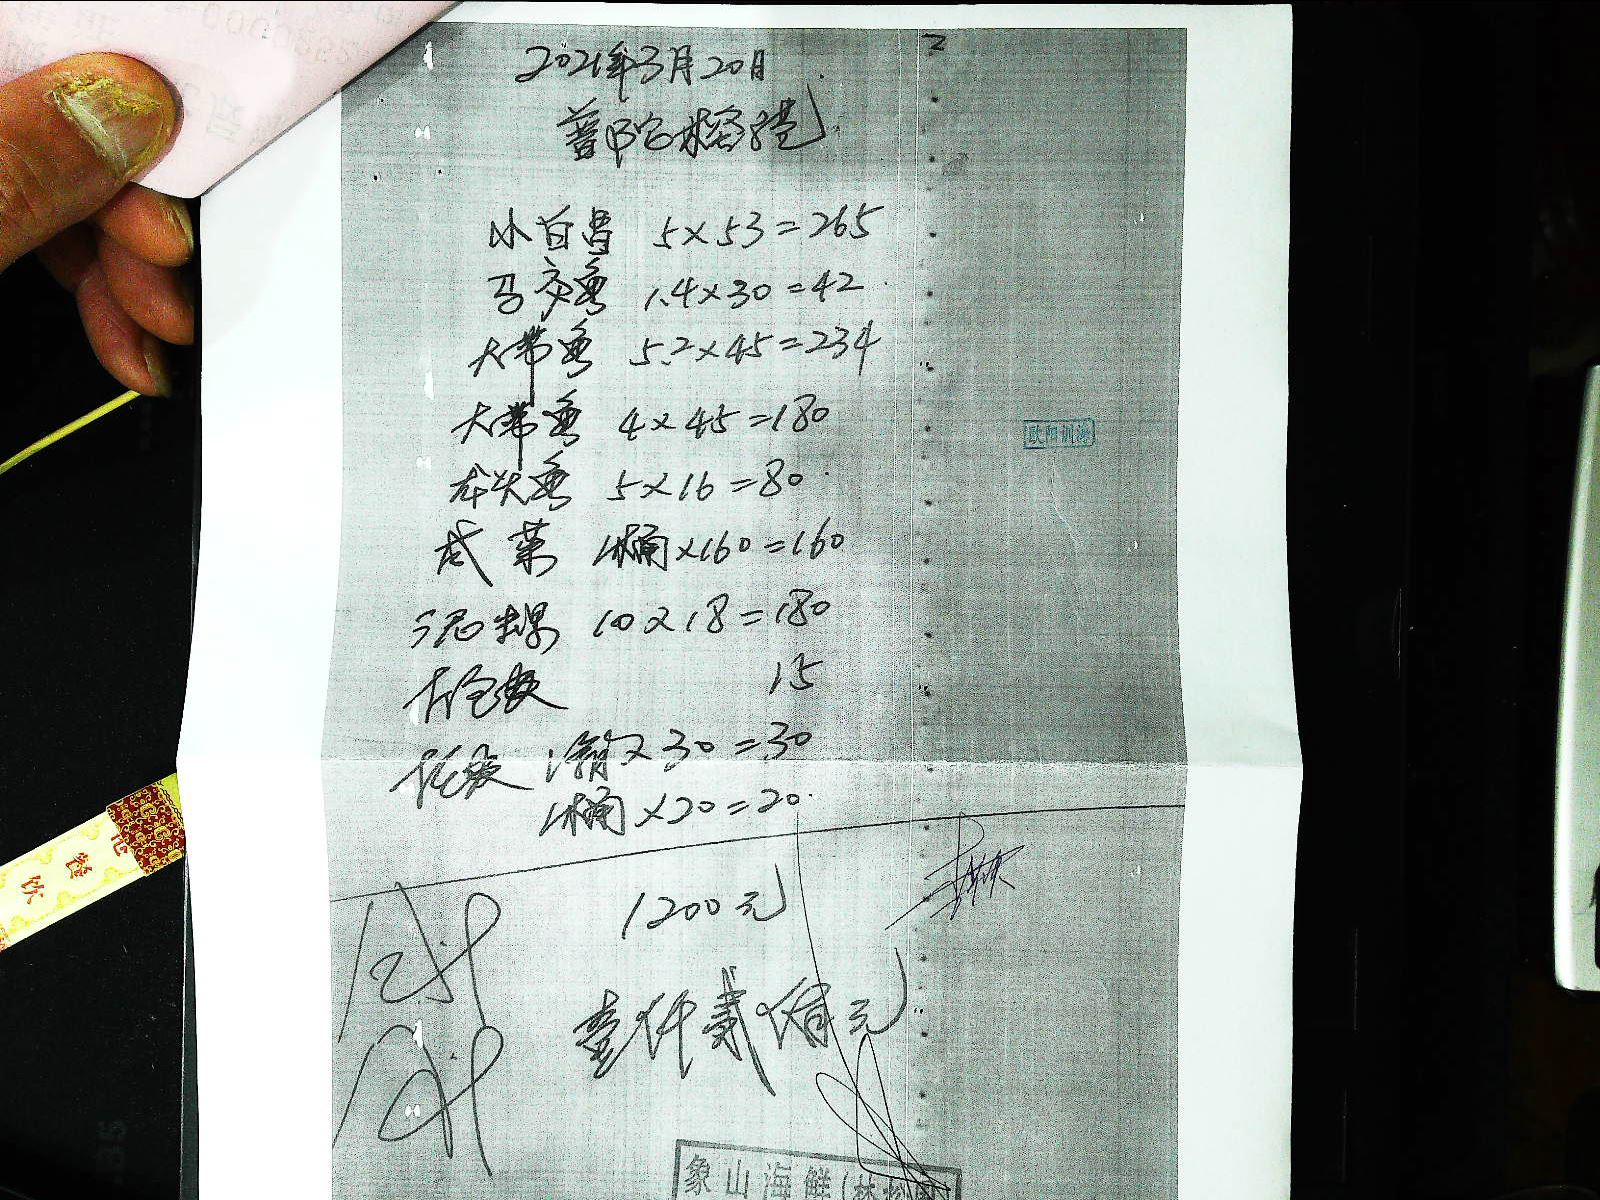 2021年3月20日
普陀
小白昌 5×53=265
马交鱼 1.4×30=42
大带鱼 5.2×45=234
大带鱼 4×45=180
龙头鱼 5×16=80
咸菜 1桶×160=160
泥螺 10×18=180
打包费 15
托费 1箱×30=30
1桶×20=20
1200元
壹仟贰佰元
象山海鲜(林
欧阳